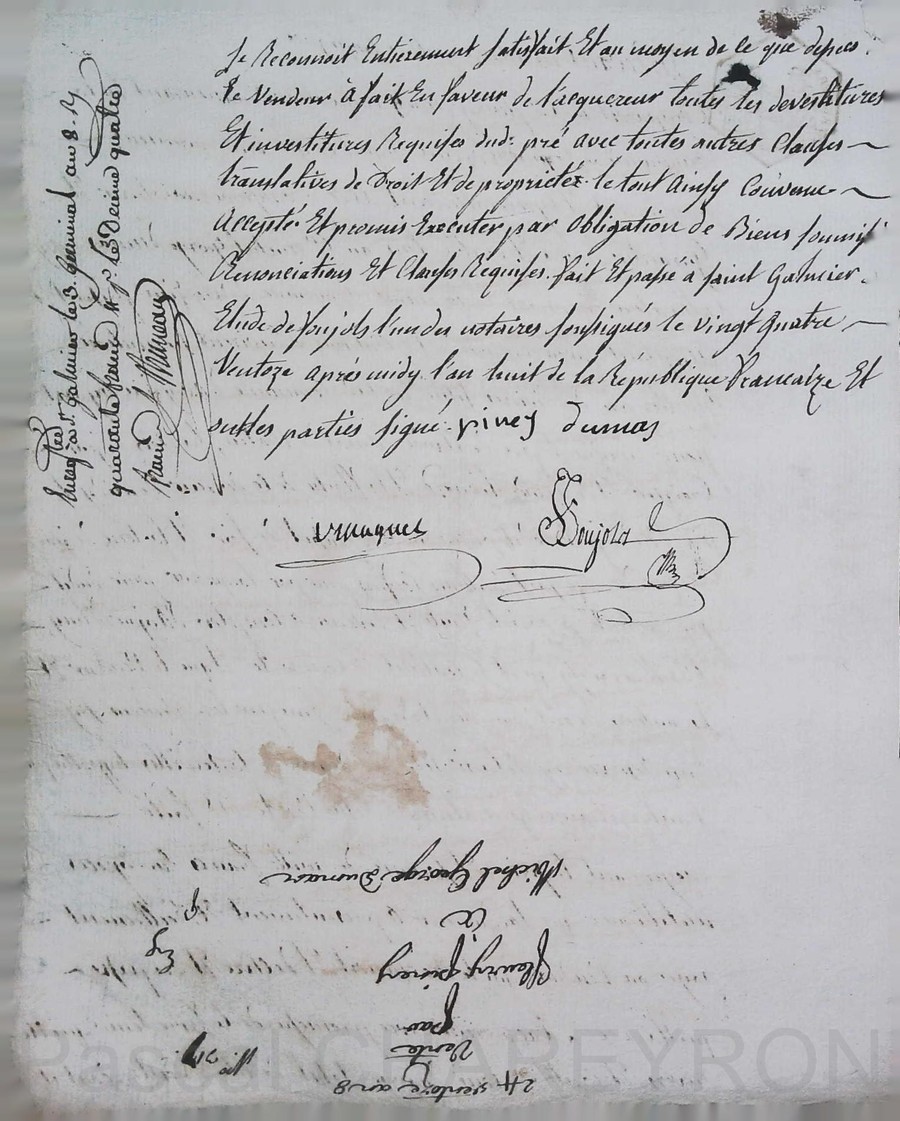 Se Reconnoit Entierement Satisfait. Et au moyen de ce que dessus
le Vendeur à fait En faveur de l'acquereur toutes les devestitures
Et investitures Requises dud. pré avec toutes autres Clauses
translatives de Droit Et de proprieté. le tout Ainsy Convenu
Accepté Et promis Executer par obligation de Biens Soumis
Renonciations Et Clauses Requises. fait Et passé a saint Galmier
Etude de Soujols l'un des notaires soussignés le vingt quatre
Ventoze après midy l'an huit de la République Francaize Et
ont les parties signé. piney Dumas
Soujols
Enreg. à St. Galmier le 3. Germinal an 8.
quarante francs pr. le Decime quatre
francs
24 ventoze an 8
Vente
par
fleury piney
a
Michel George Dumas